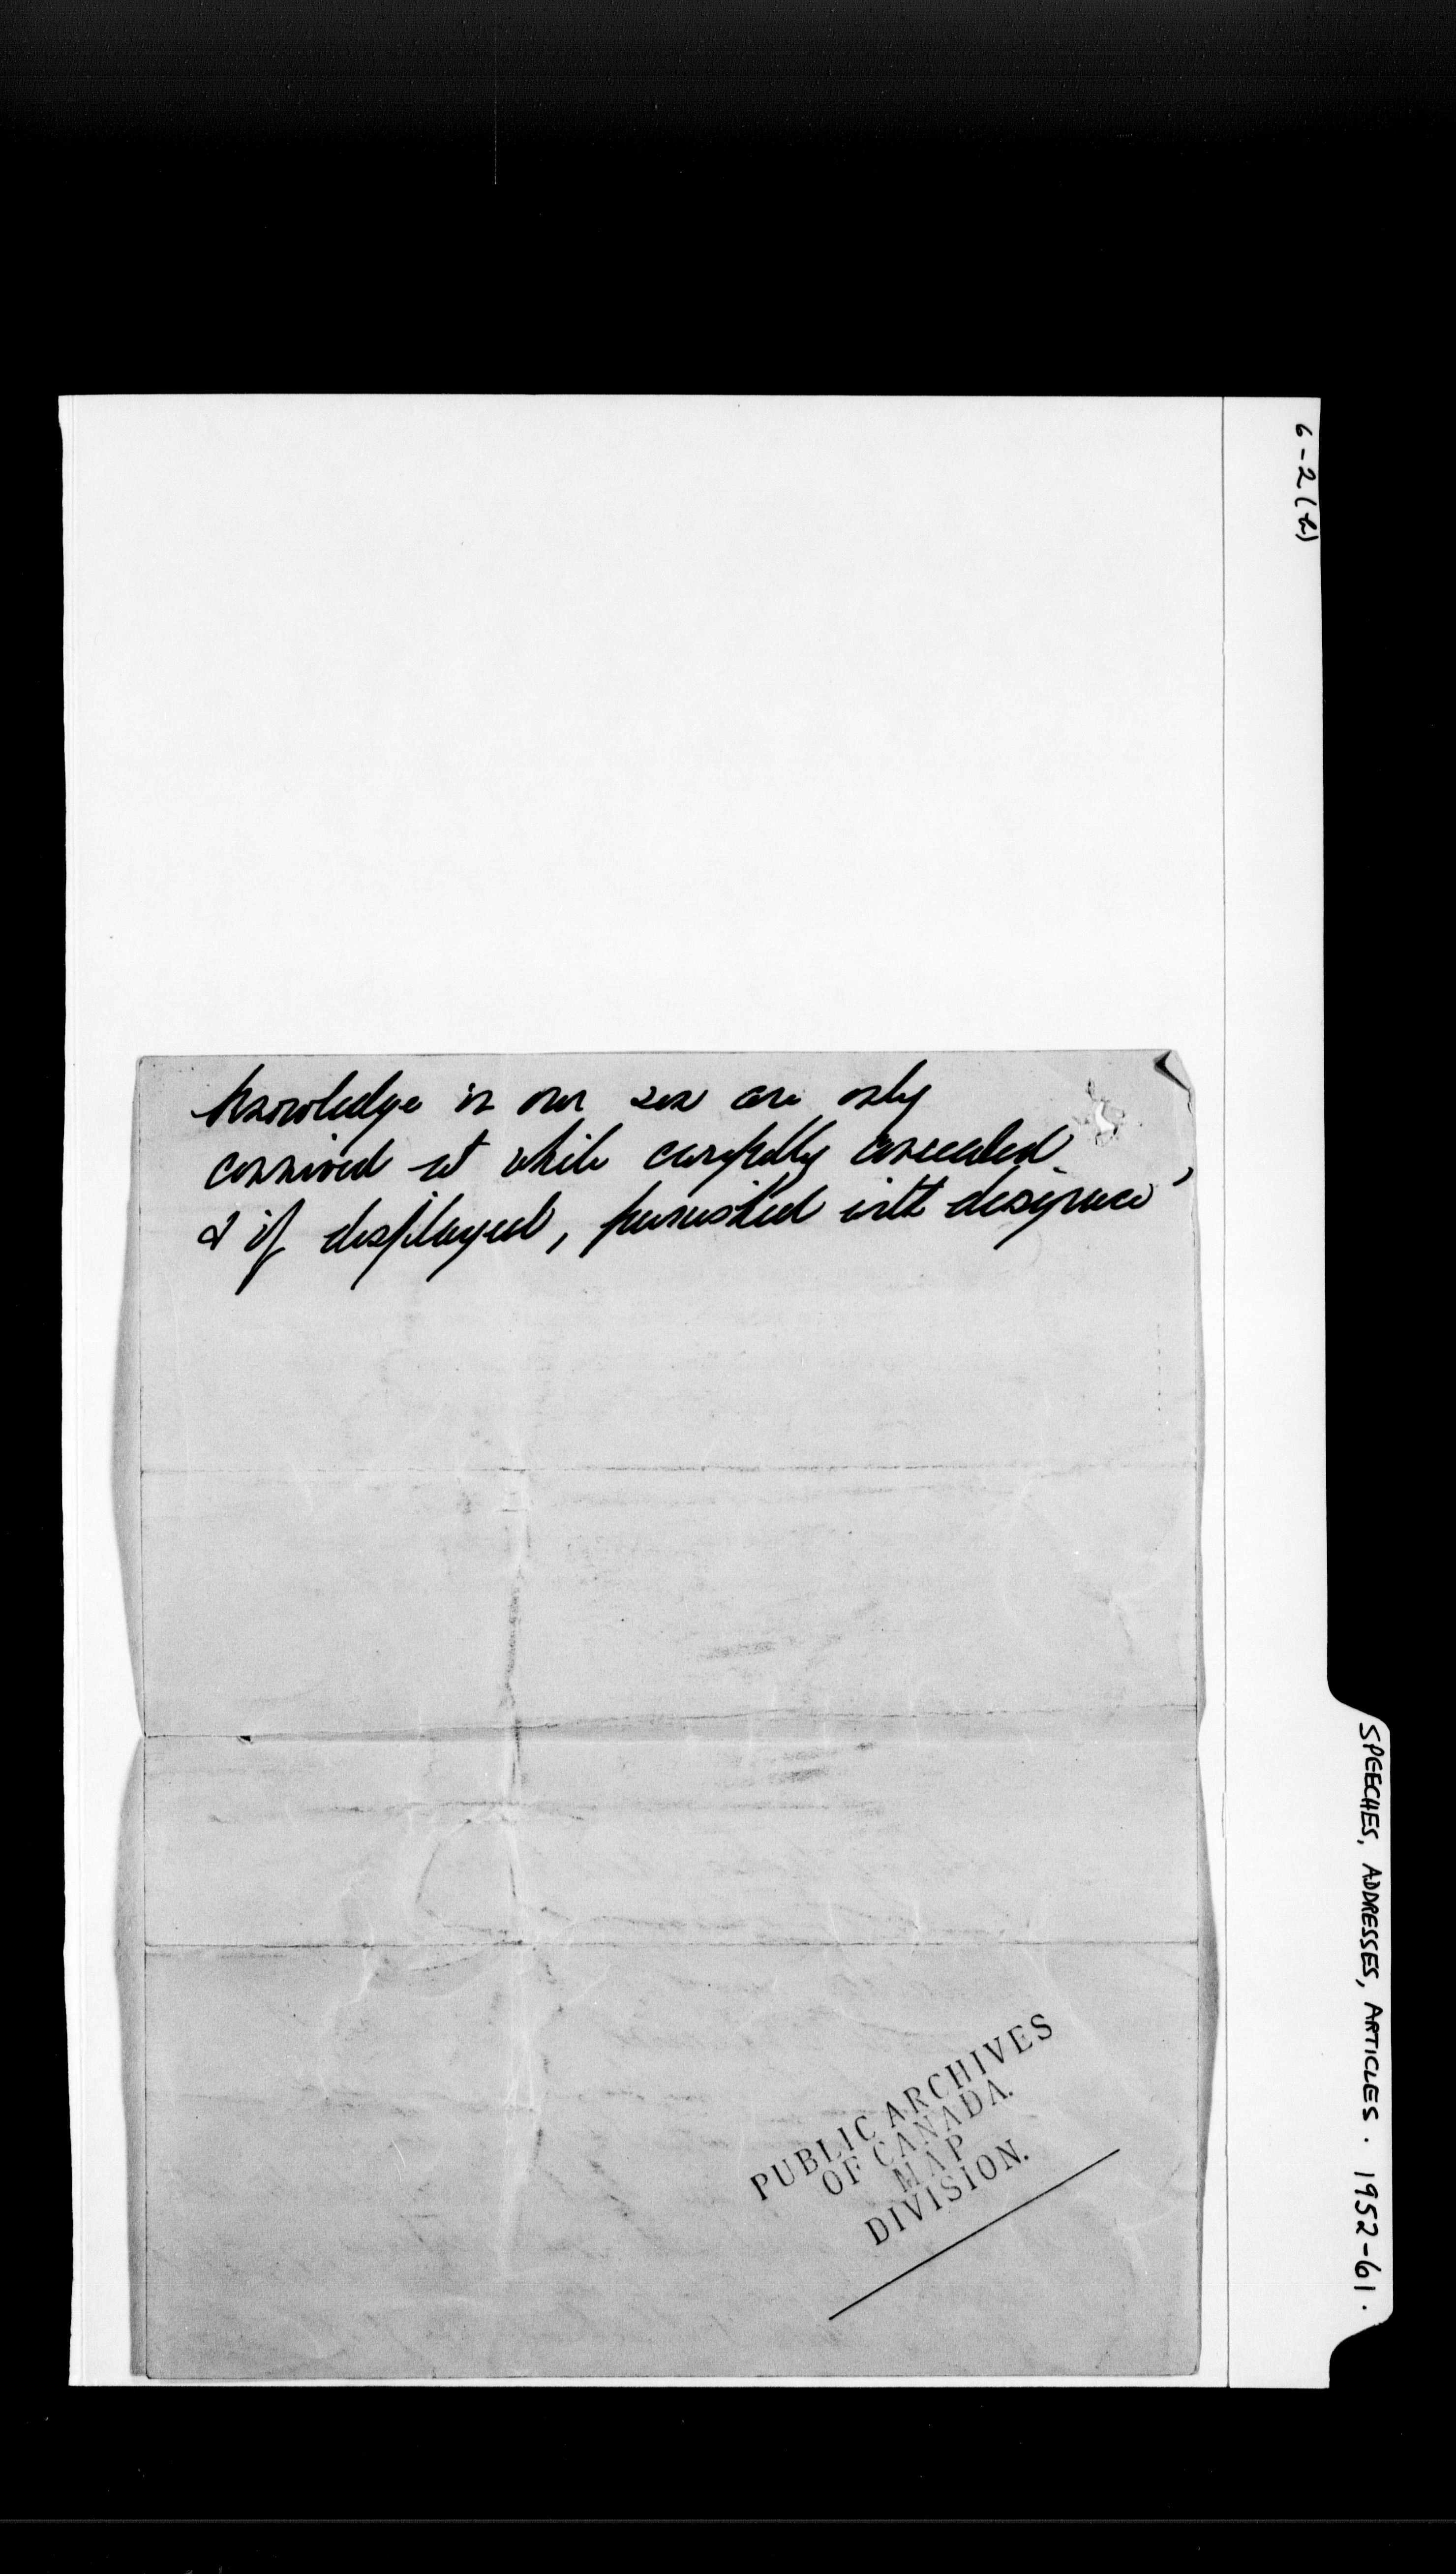 knowledge in our sex are only
connived at while carefully concealed
& if displayed, punished with disgrace'
PUBLIC ARCHIVES
OF CANADA.
MAP
DIVISION.
6-2(h)
SPEECHES, ADDRESSES, ARTICLES. 1952-61.